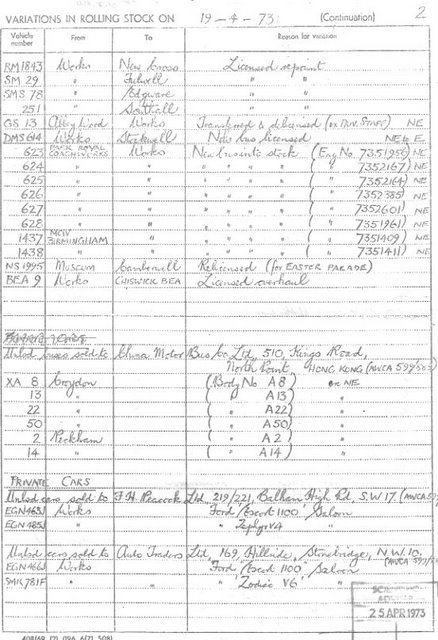 VARIATIONS IN ROLLING STOCK ON 19-4-73 (Continuation) 2
Vehicle number From To Reason for variation
RM1843 Works New Cross Licensed repaint
SM 29 " Fulwell " "
SMS 78 " Edgware " "
251 " Southall " "
GS 13 Abbey Wood Works Transferred & delicensed (ex DIV. STAFF) NE
DMS 614 Works Stockwell New bus licensed NE to E
623 PARK ROYAL COACHWORKS Works New bus into stock (Eng No. 7351956) NE
624 " " " " " " ( " " 7352167) NE
625 " " " " " " ( " " 7352164) NE
626 " " " " " " ( " " 7352385) NE
627 " " " " " " ( " " 7352601) NE
628 " " " " " " ( " " 7351961) NE
1437 MCW BIRMINGHAM " " " " " ( " " 7351409) NE
1438 " " " " " " ( " " 7351411) NE
NS 1995 Museum Camberwell Relicensed (for EASTER PARADE)
BEA 9 Works CHISWICK BEA Licensed overhaul
Unlsd buses sold to China Motor Bus Co Ltd, 510, Kings Road,
North Point, HONG KONG (AWCA
XA 8 Croydon (Body No A8) NE
13 " ( " A13) "
22 " ( " A22) "
50 " ( " A50) "
2 Peckham ( " A2) "
14 " ( " A14) "
PRIVATE CARS
Unlsd cars sold to F.H. Peacock Ltd, 219/221, Balham High Rd, S.W.17. (AWCA
EGN463J Works Ford "Escort 1100" Saloon
EGN485J " " Zephyr V4 "
Unlsd cars sold to Auto Traders Ltd, 169, Hillside, Stonebridge, N.W.10.
EGN466J Works "Ford "Escort 1100" Saloon
SMK781F " " "Zodiac V6" "
25 APR 1973